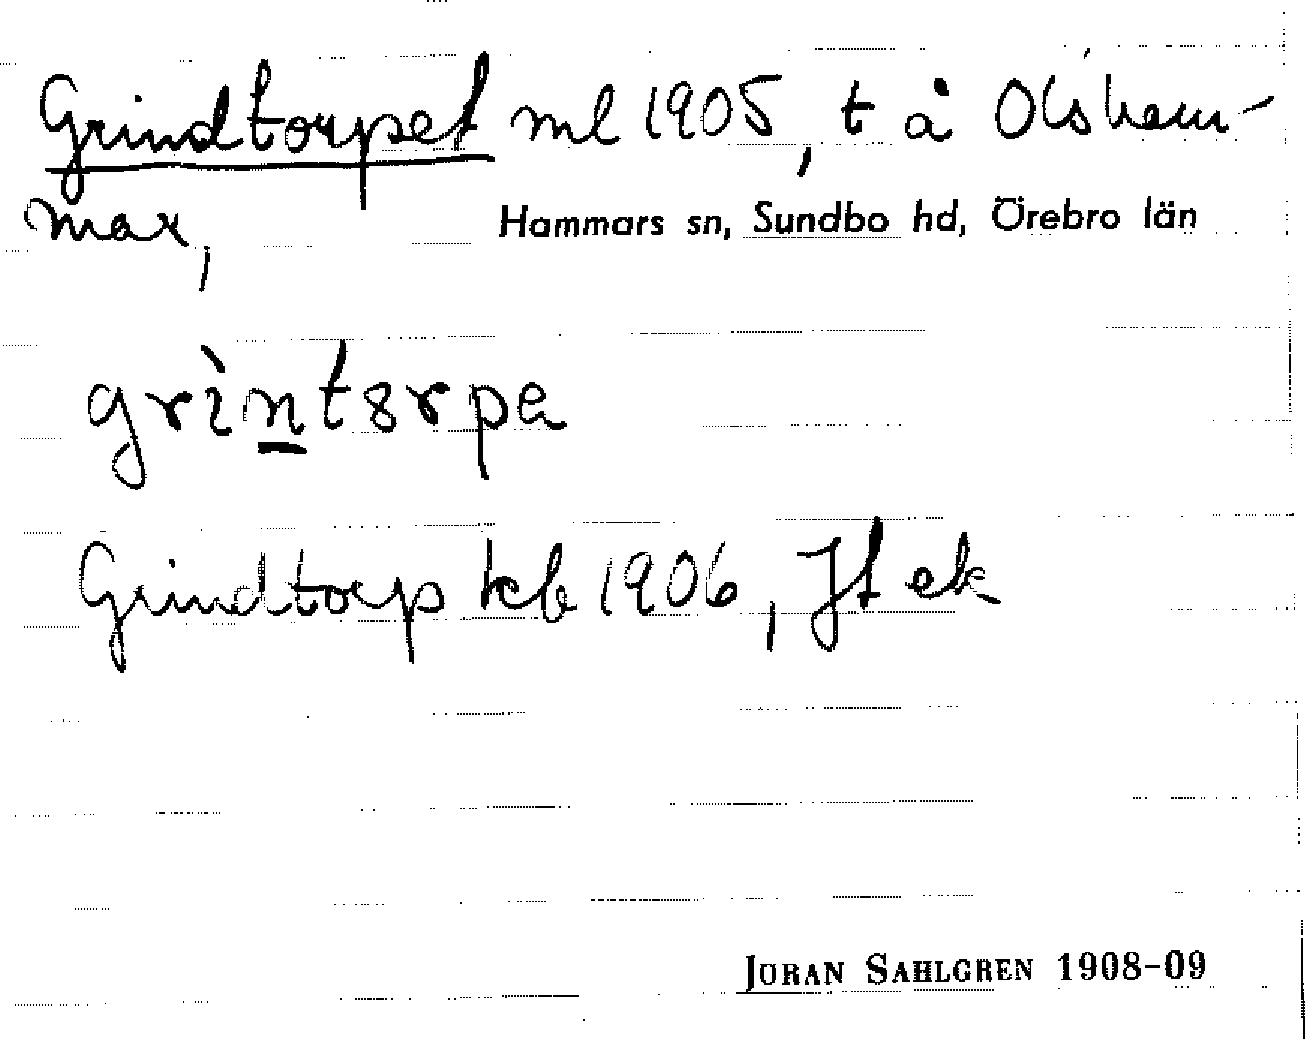 Grindtorpet ml 1905, t å Olsham-
mar,
Hammars sn, Sundbo hd, Örebro län
grìntɜrpa
Grindtorp kb 1906, Jfl ek
JÖRAN SAHLGREN 1908-09